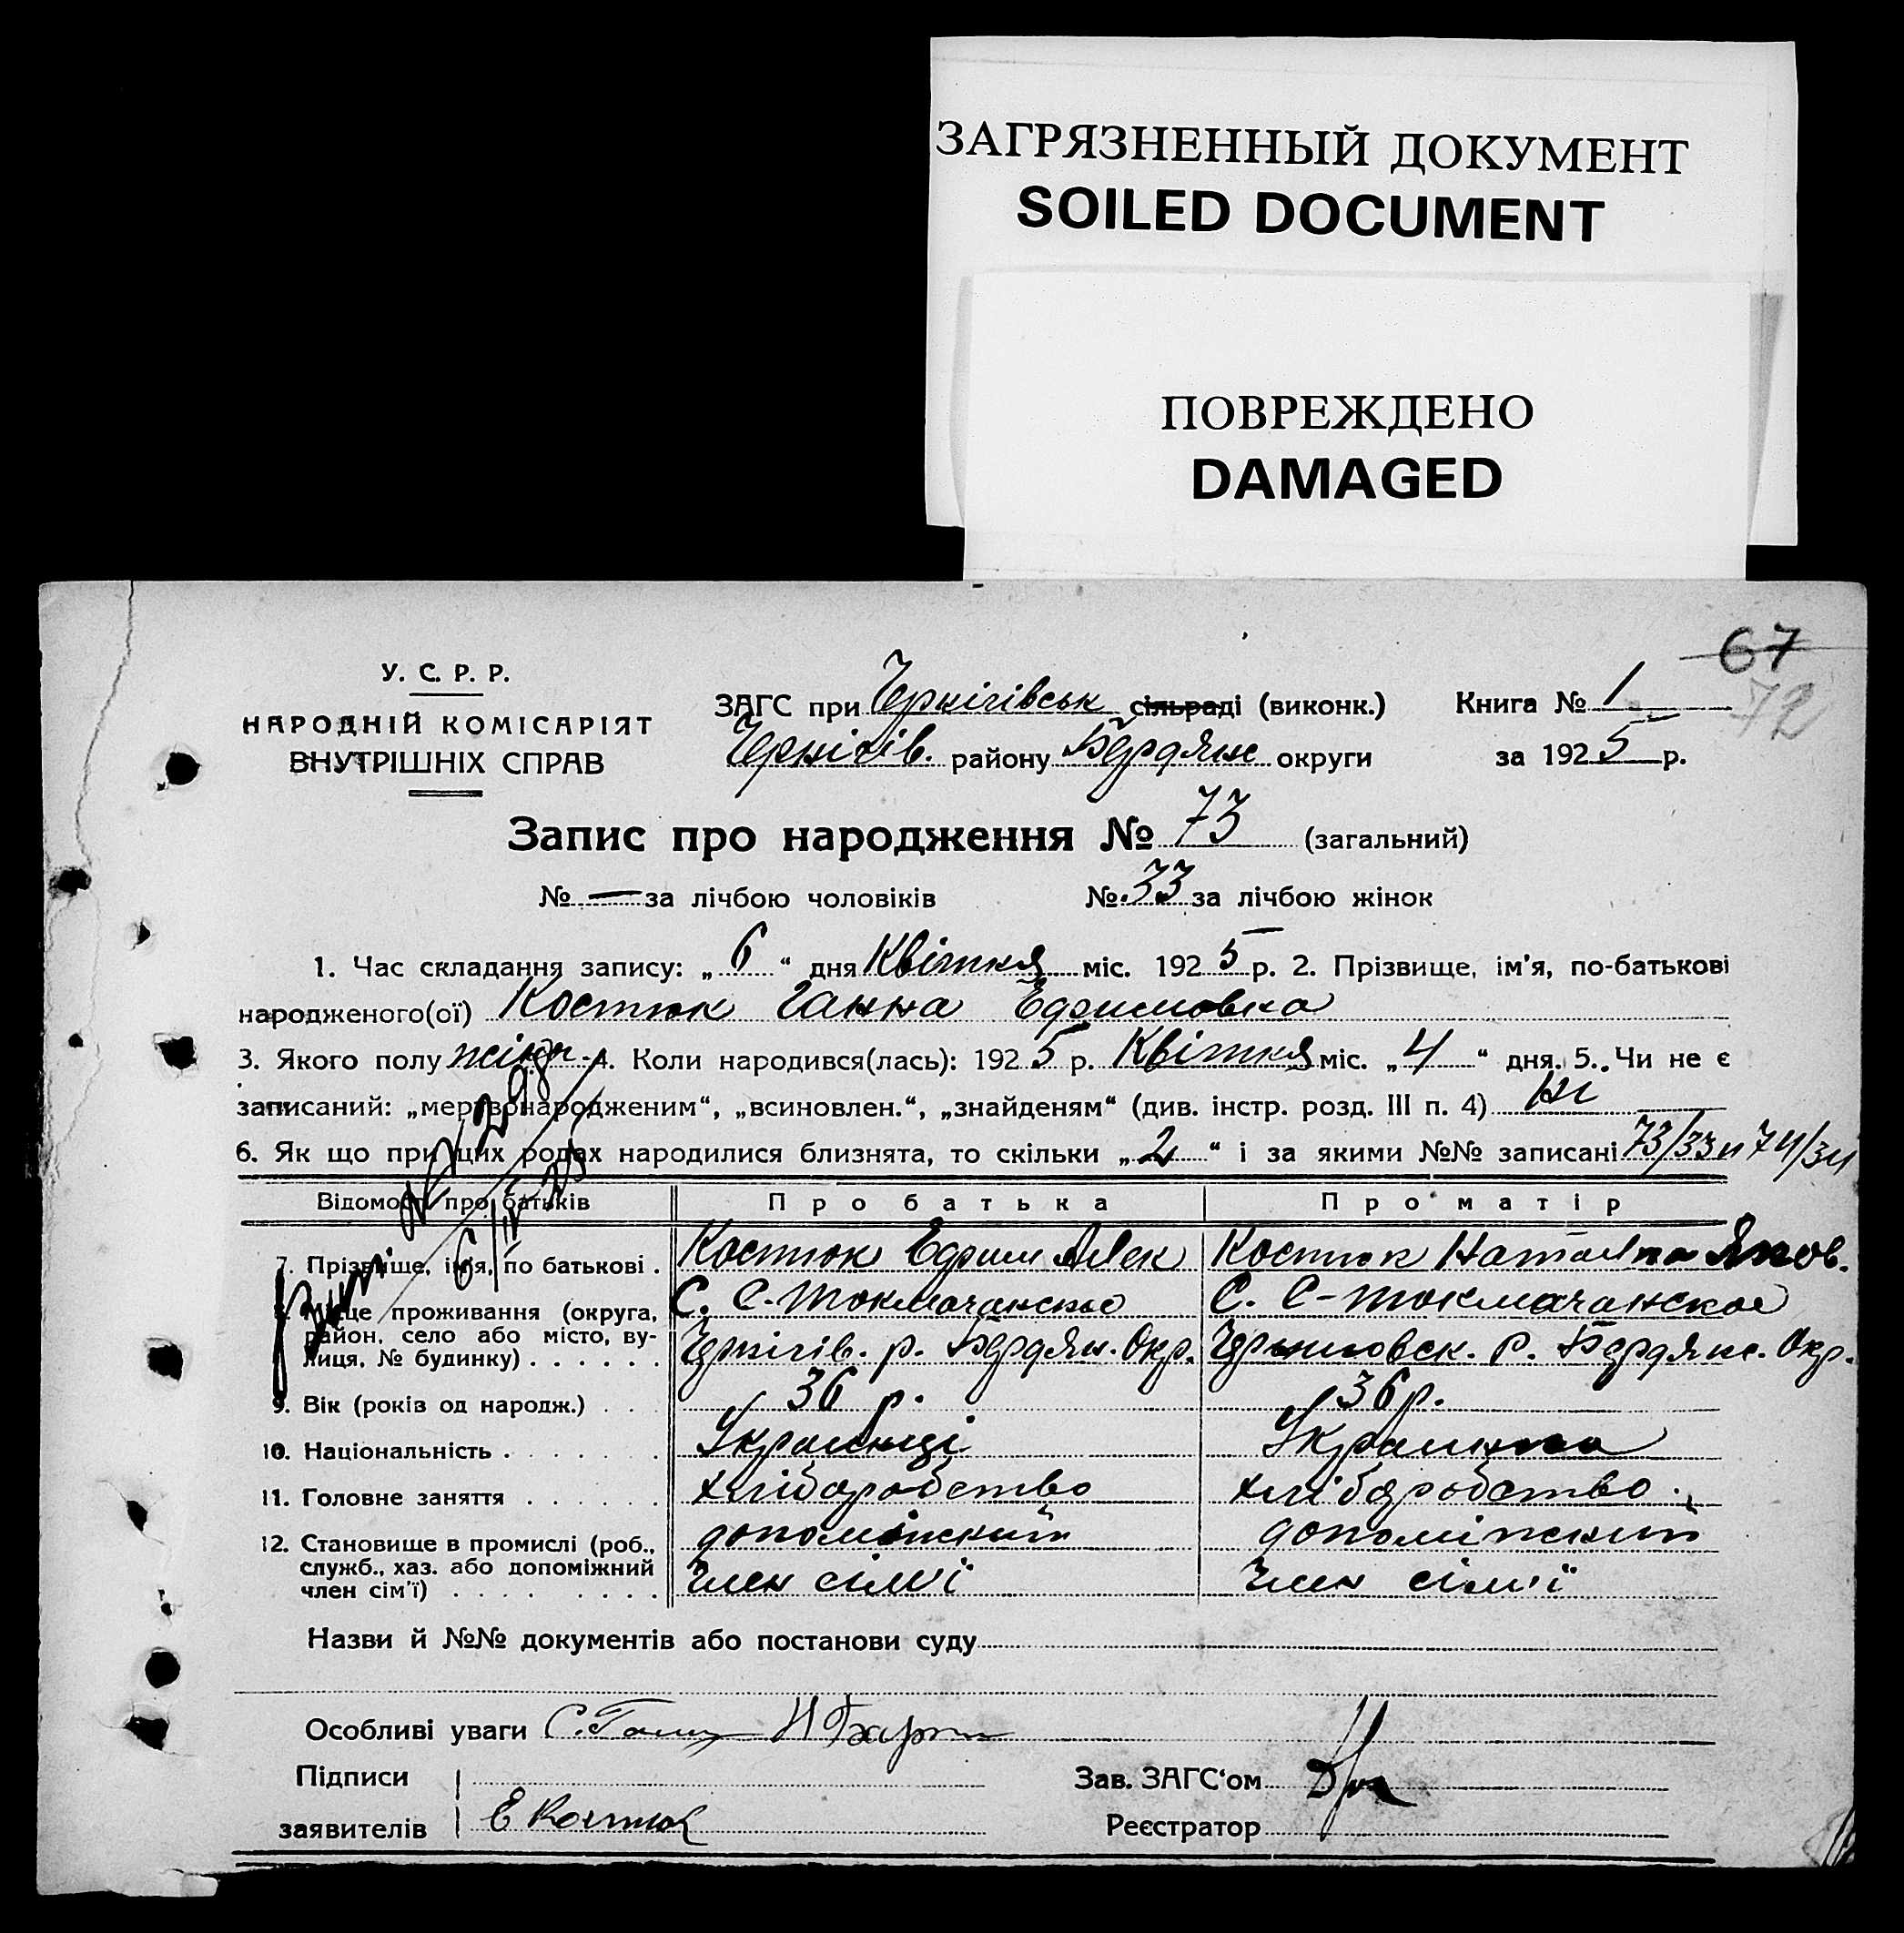 ЗАГРЯЗНЕННЫЙ ДОКУМЕНТ
SOILED DOCUMENT
ПОВРЕЖДЕНО
DAMAGED
67
72
У. С. Р. Р.
НАРОДНІЙ КОМІСАРІЯТ
ВНУТРІШНІХ СПРАВ
ЗАГС при Чернігівськ сільраді (виконк.) Книга № 1
Чернігів. району Бердянс округи за 1925 р.
Запис про народження № 73 (загальний)
№ — за лічбою чоловіків № 33 за лічбою жінок
1. Час складання запису: „6“ дня Квітня міс. 1925 р. 2. Прізвище, ім'я, по-батькові
народженого(ої) Костюк Ганна Ефимовна
3. Якого полу жіноч. 4. Коли народився(лась): 1925 р. Квітня міс. „4“ дня. 5. Чи не є
записаний: „мертвонародженим“, „всиновлен.“, „знайденям“ (див. інстр. розд. III п. 4) ні
6. Як що при цих родах народилися близнята, то скільки „2“ і за якими №№ записані 73/33 и 74/34
Відомості про батьків Про батька Про матір
7. Прізвище, ім'я, по батькові . Костюк Ефим Алек Костюк Наталка Яков.
8. Місце проживання (округа, С. С-Токмачанское С. С-Токмачанское
район, село або місто, ву-
лиця, № будинку) . . . . . . Чернігів. р. Бердян. Окр. Черниговск. р. Бердянс. Окр.
9. Вік (років од народж.) . . . 36 р. 36 р.
10. Національність . . . . . . . Украинці Украинка
11. Головне заняття . . . . . . хліборобство хліборобство
12. Становище в промислі (роб., допоміжний допоміжний
служб., хаз. або допоміжний
член сім'ї) . . . . . . . . . Член сім'ї Член сім'ї
№ 298
6/IV 25
Назви й №№ документів або постанови суду
Особливі уваги
Підписи Зав. ЗАГС'ом
заявителів Е Костюк Реєстратор